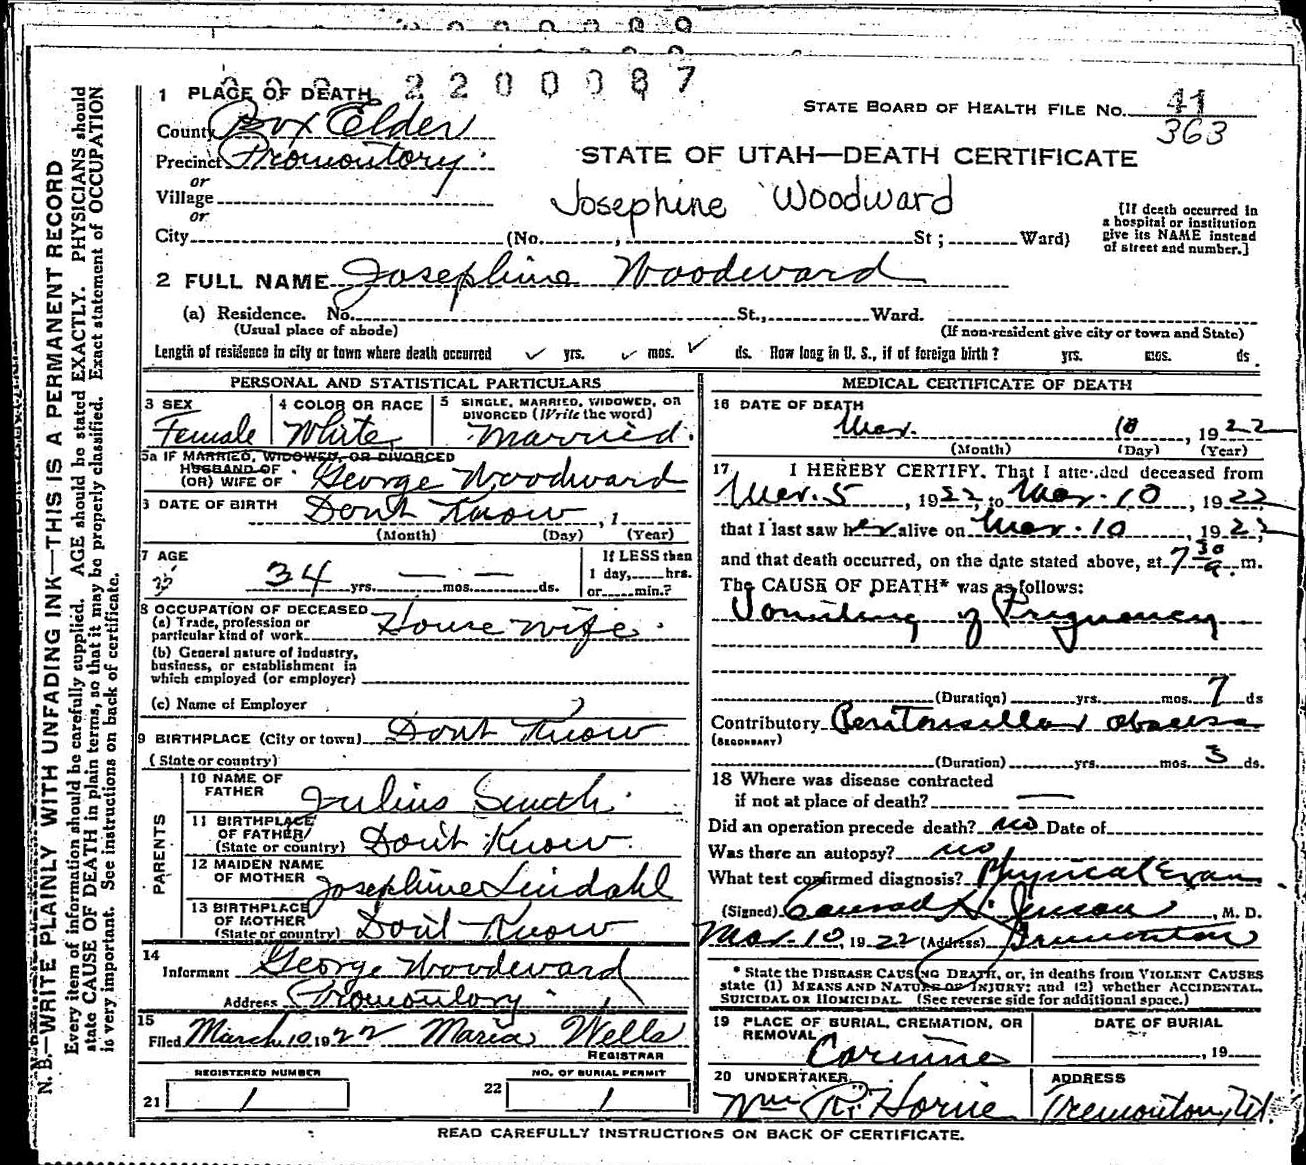 2200087
1 PLACE OF DEATH
STATE BOARD OF HEALTH FILE NO. 41
363
County Box Elder
Precinct Promontory
STATE OF UTAH—DEATH CERTIFICATE
or
Village
Josephine Woodward
or
City (No. , St; Ward)
[If death occurred in
a hospital or institution
give its NAME instead
of street and number.]
2 FULL NAME Josephine Woodward
(a) Residence. No. St., Ward.
(Usual place of abode) (If non-resident give city or town and State)
Length of residence in city or town where death occurred yrs. mos. ds. How long in U. S., if of foreign birth? yrs. mos. ds
PERSONAL AND STATISTICAL PARTICULARS
3 SEX Female
4 COLOR OR RACE White
5 SINGLE, MARRIED, WIDOWED, OR
DIVORCED (Write the word)
Married.
5a IF MARRIED, WIDOWED, OR DIVORCED
HUSBAND OF
(OR) WIFE OF George Woodward
6 DATE OF BIRTH Don't Know , 1
(Month) (Day) (Year)
7 AGE
34 yrs. — mos. — ds.
If LESS then
1 day, hrs.
or min.?
8 OCCUPATION OF DECEASED
(a) Trade, profession or
particular kind of work House Wife
(b) General nature of industry,
business, or establishment in
which employed (or employer)
(c) Name of Employer
9 BIRTHPLACE (City or town) Dont Know
(State or country)
PARENTS
10 NAME OF
FATHER Julius Smith
11 BIRTHPLACE
OF FATHER
(State or country) Don't Know
12 MAIDEN NAME
OF MOTHER Josephine Lindahl
13 BIRTHPLACE
OF MOTHER
(State or country) Don't Know
14
Informant George Woodward
Address Promontory
15
Filed March 10 1922 Maria Wells
REGISTRAR
REGISTERED NUMBER
21 1
NO. OF BURIAL PERMIT
22 1
MEDICAL CERTIFICATE OF DEATH
16 DATE OF DEATH
Mar. 10, 1922
(Month) (Day) (Year)
17 I HEREBY CERTIFY. That I attended deceased from
Mar. 5, 1922, to Mar. 10, 1922
that I last saw her alive on Mar. 10, 1922,
and that death occurred, on the date stated above, at 7 30 a. m.
The CAUSE OF DEATH* was as follows:
Vomiting of Pregnancy
(Duration) yrs. mos. 7 ds
Contributory Peritonsillar abscess
(SECONDARY)
(Duration) yrs. mos. 3 ds.
18 Where was disease contracted
if not at place of death? —
Did an operation precede death? no Date of
Was there an autopsy? no
What test confirmed diagnosis? Physical Exam
(Signed) Conrad H. Jenson, M. D.
Mar. 10 1922 (Address) Tremonton
* State the DISEASE CAUSING DEATH, or, in deaths from VIOLENT CAUSES
state (1) MEANS AND NATURE OF INJURY; and (2) whether ACCIDENTAL,
SUICIDAL OR HOMICIDAL. (See reverse side for additional space.)
19 PLACE OF BURIAL, CREMATION, OR
REMOVAL Corinne
DATE OF BURIAL
, 19
20 UNDERTAKER
Wm R. Horne
ADDRESS
Tremonton, Ut.
READ CAREFULLY INSTRUCTIONS ON BACK OF CERTIFICATE.
N. B.—WRITE PLAINLY WITH UNFADING INK—THIS IS A PERMANENT RECORD
Every item of information should be carefully supplied. AGE should be stated EXACTLY. PHYSICIANS should
state CAUSE OF DEATH in plain terms, so that it may be properly classified. Exact statement of OCCUPATION
is very important. See instructions on back of certificate.